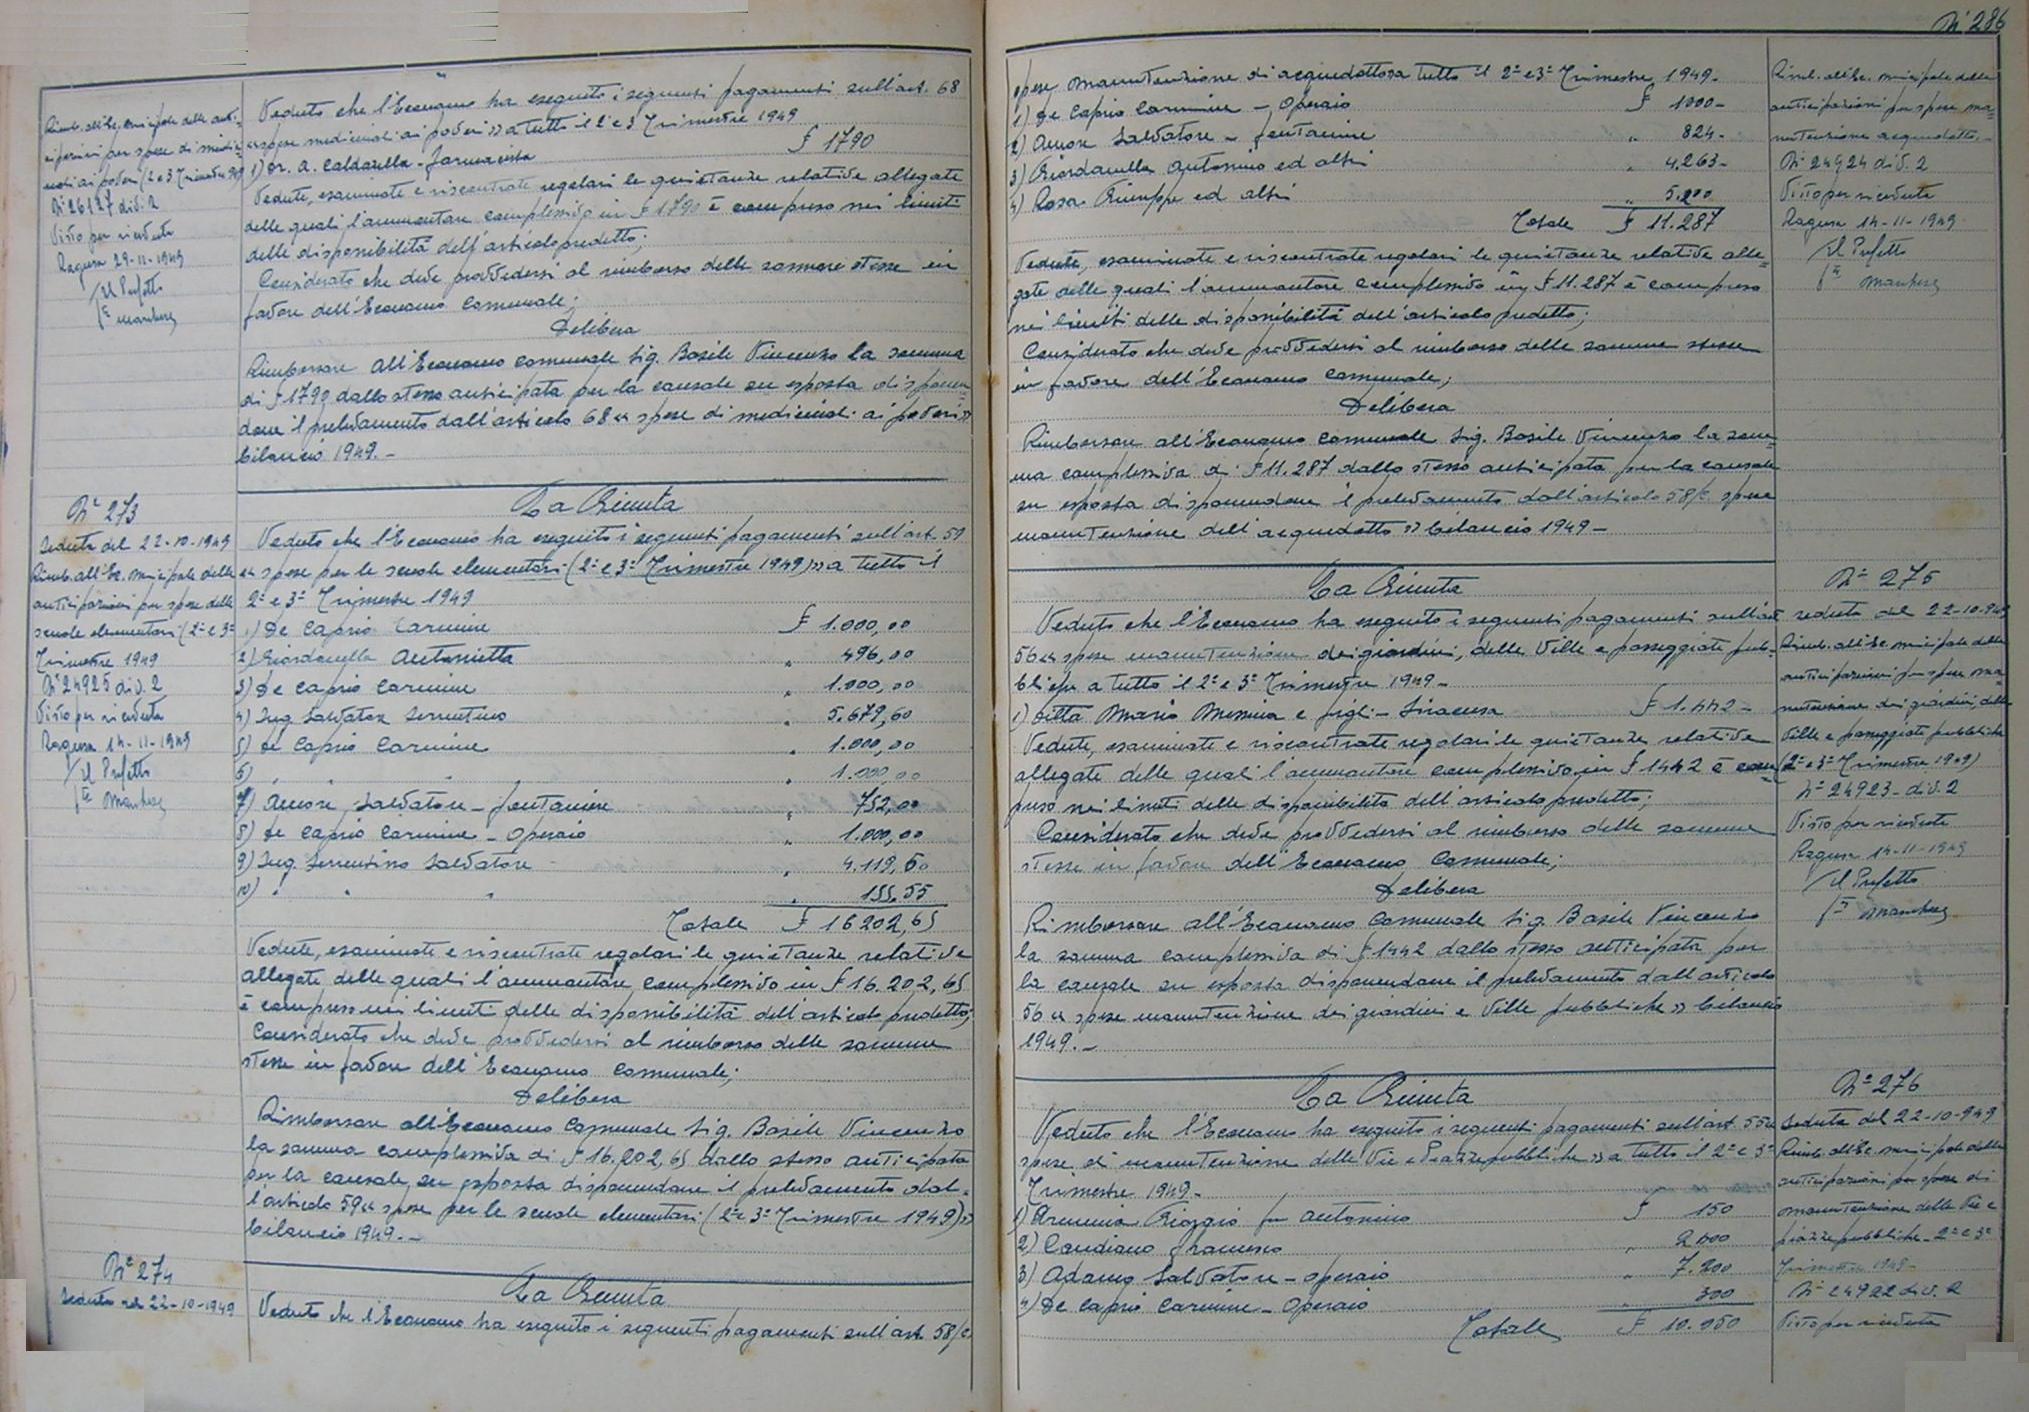 Rimb. all'Ec. municipale delle anti-
cipazioni per spese di medici-
nali ai poveri (2 e 3 Trimestre 949)
N° 26127 div. 2
Visto per ricevuta
Ragusa 29-11-1949
Il Prefetto
Veduto che l'Economo ha eseguito i seguenti pagamenti sull'art. 68
"spese medicinali ai poveri" a tutto il 2° e 3° Trimestre 1949
1) Dr. A. Caldarella - Farmacista £ 1790
Vedute, esaminate e riscontrate regolari le quietanze relative allegate
delle quali l'ammontare complessivo in £ 1790 è compreso nei limiti
delle disponibilità dell'articolo predetto;
Considerato che deve provvedersi al rimborso delle somme stesse in
favore dell'Economo Comunale;
Delibera
Rimborsare all'Economo Comunale Sig. Basile Vincenzo la somma
di £ 1790 dallo stesso anticipata per la causale su esposta disponen-
done il prelevamento dall'articolo 68 "spese di medicinali ai poveri"
bilancio 1949.-
N° 273
Seduta del 22-10-1949
Rimb. all'Ec. municipale delle
anticipazioni per spese delle
scuole elementari (2° e 3°
Trimestre 1949
N° 24925 div. 2
Visto per ricevuta
Ragusa 14-11-1949
Il Prefetto
La Giunta
Veduto che l'Economo ha eseguito i seguenti pagamenti sull'art. 59
"spese per le scuole elementari (2° e 3° Trimestre 1949)" a tutto il
2° e 3° Trimestre 1949
1) De Caprio Carmine £ 1.000,00
2) Giordanella Antonietta " 496,00
3) De Caprio Carmine " 1.000,00
4) Ing. Salvatore Sorrentino " 5.679,60
5) De Caprio Carmine " 1.000,00
6) " " " 1.000,00
7) Amore Salvatore - fontaniere " 752,00
8) De Caprio Carmine - Operaio " 1.000,00
9) Ing. Sorrentino Salvatore " 4.119,50
10) " " " 155.55
Totale £ 16202,65
Vedute, esaminate e riscontrate regolari le quietanze relative
allegate delle quali l'ammontare complessivo in £ 16.202,65
è compreso nei limiti delle disponibilità dell'articolo predetto;
Considerato che deve provvedersi al rimborso delle somme
stesse in favore dell'Economo Comunale;
Delibera
Rimborsare all'Economo Comunale Sig. Basile Vincenzo
la somma complessiva di £ 16.202,65 dallo stesso anticipata
per la causale su esposta disponendone il prelevamento dal-
l'articolo 59 "spese per le scuole elementari (2° e 3° Trimestre 1949)"
bilancio 1949.-
N° 274
Seduta del 22-10-1949
La Giunta
Veduto che l'Economo ha eseguito i seguenti pagamenti sull'art. 58/c
N° 286
spese manutenzione di acquedotto a tutto il 2° e 3° Trimestre 1949-
1) De Caprio Carmine - Operaio £ 1000-
2) Amore Salvatore - fontaniere " 824-
3) Giordanella Antonino ed altri " 4.263-
4) Rosa Giuseppe ed altri " 5.200
Totale £ 11.287
Vedute, esaminate e riscontrate regolari le quietanze relative alle-
gate delle quali l'ammontare complessivo in £ 11.287 è compreso
nei limiti delle disponibilità dell'articolo predetto;
Considerato che deve provvedersi al rimborso delle somme stesse
in favore dell'Economo Comunale;
Delibera
Rimborsare all'Economo Comunale Sig. Basile Vincenzo la som-
ma complessiva di £ 11.287 dallo stesso anticipata per la causale
su esposta disponendone il prelevamento dall'articolo 58/c spese
manutenzione dell'acquedotto" bilancio 1949-
Rimb. all'Ec. municipale delle
anticipazioni per spese ma-
nutenzione acquedotto.-
N° 24924 div. 2
Visto per ricevuta
Ragusa 14-11-1949
Il Prefetto
La Giunta
Veduto che l'Economo ha eseguito i seguenti pagamenti sull'art
56 "spese manutenzione dei giardini, delle Ville e passeggiate pub-
bliche a tutto il 2° e 3° Trimestre 1949-
1) Ditta Mario Messina e figli - Siracusa £ 1.442-
Vedute, esaminate e riscontrate regolari le quietanze relative
allegate delle quali l'ammontare complessivo in £ 1442 è com-
preso nei limiti delle disponibilità dell'articolo predetto;
Considerato che deve provvedersi al rimborso delle somme
stesse in favore dell'Economo Comunale;
Delibera
Rimborsare all'Economo Comunale Sig. Basile Vincenzo
la somma complessiva di £ 1442 dallo stesso anticipata per
la causale su esposta disponendone il prelevamento dall'articolo
56 "spese manutenzione dei giardini e Ville pubbliche" bilancio
1949.-
N° 275
seduta del 22-10-949
Rimb. all'Ec. municipale delle
anticipazioni per spese ma-
nutenzione dei giardini, delle
Ville e passeggiate pubbliche
(2° e 3° Trimestre 1949)
N° 24923 - div. 2
Visto per ricevuta
Ragusa 14-11-1949
Il Prefetto
La Giunta
Veduto che l'Economo ha eseguito i seguenti pagamenti sull'art. 55 "
spese di manutenzione delle Vie e Piazze pubbliche" a tutto il 2° e 3°
Trimestre 1949-
1) Arminia Gioggio fu Antonino £ 150
2) Candiano Francesco " 2400
3) Adamo Salvatore - operaio " 7.200
4) De Caprio Carmine - Operaio " 300
Totale £ 10.050
N° 276
Seduta del 22-10-949
Rimb. all'Ec. municipale delle
anticipazioni per spese di
manutenzione delle Vie e
piazze pubbliche - 2° e 3°
Trimestre 1949-
N° 24922 div. 2
Visto per ricevuta